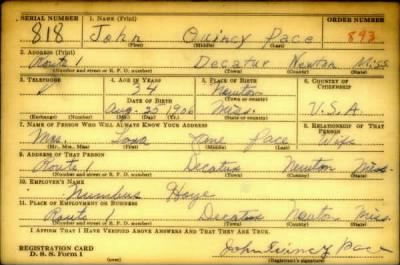 SERIAL NUMBER 1. NAME (Print) ORDER NUMBER
818 John Quincy Pace 893
(First) (Middle) (Last)
2. ADDRESS (Print)
Route 1 Decatur Newton Miss
(Number and street or R. F. D. number) (Town) (County) (State)
3. TELEPHONE 4. AGE IN YEARS 5. PLACE OF BIRTH 6. COUNTRY OF CITIZENSHIP
34 Newton
DATE OF BIRTH (Town or county)
Aug. 20 1906 Miss. U.S.A
(Exchange) (Number) (Mo.) (Day) (Yr.) (State or country)
7. NAME OF PERSON WHO WILL ALWAYS KNOW YOUR ADDRESS 8. RELATIONSHIP OF THAT PERSON
Mrs. Jane Pace Wife
(Mr., Mrs., Miss) (First) (Middle) (Last)
9. ADDRESS OF THAT PERSON
Route 1 Decatur Newton Miss
(Number and street or R. F. D. number) (Town) (County) (State)
10. EMPLOYER'S NAME
11. PLACE OF EMPLOYMENT OR BUSINESS
Route Decatur Newton Miss.
(Number and street or R. F. D. number) (Town) (County) (State)
I AFFIRM THAT I HAVE VERIFIED ABOVE ANSWERS AND THAT THEY ARE TRUE.
REGISTRATION CARD John Quincy Pace
D. S. S. Form 1 (over) (Registrant's signature)